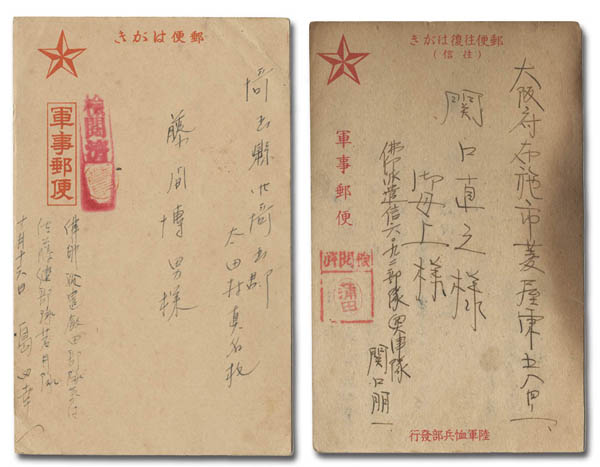 郵便はがき
埼玉縣北埼玉郡
太田村真名板
藤間博男様
検閲済
軍事郵便
佛印派遣飯田部隊気付
部隊若月隊
十月十六日 島田幸一
郵便往復はがき
(往信)
大阪府布施市菱屋東
関口直之様
御母上様
軍事郵便
佛印派遣信六九二部隊奥津隊
関口朋一
検閲済
蒲田
陸軍恤兵部發行